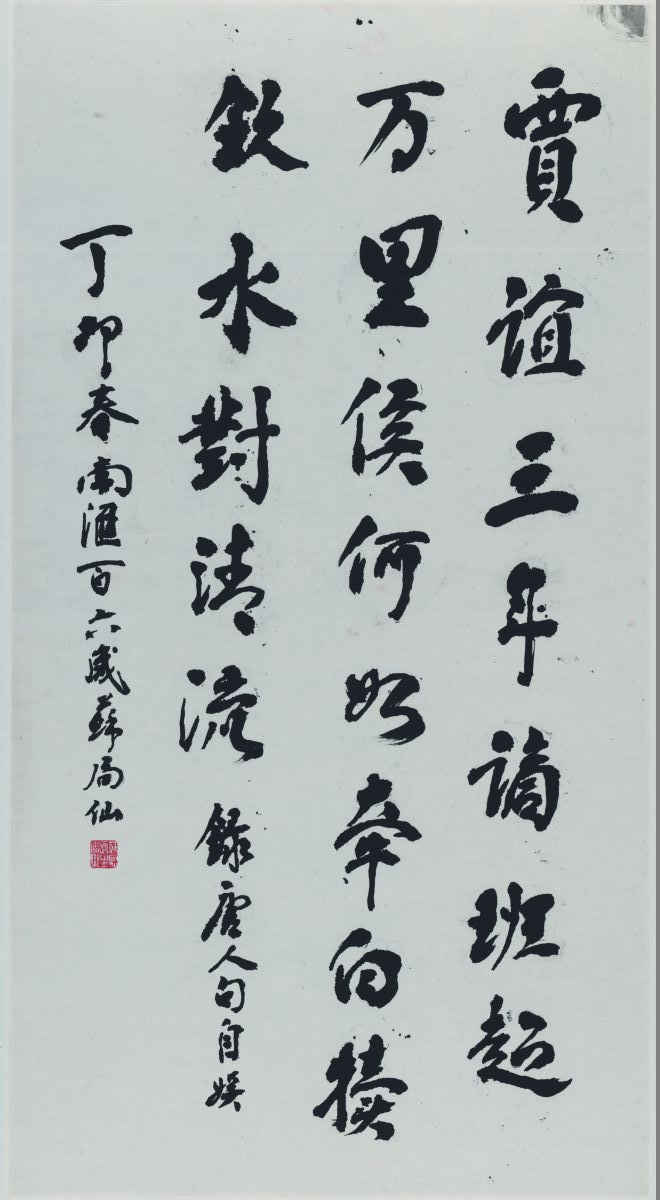 賈誼三年謫班超
万里侯何如牽白犢
飲水對清流 錄唐人句自娛
丁卯春南滙百六歲蘇局仙